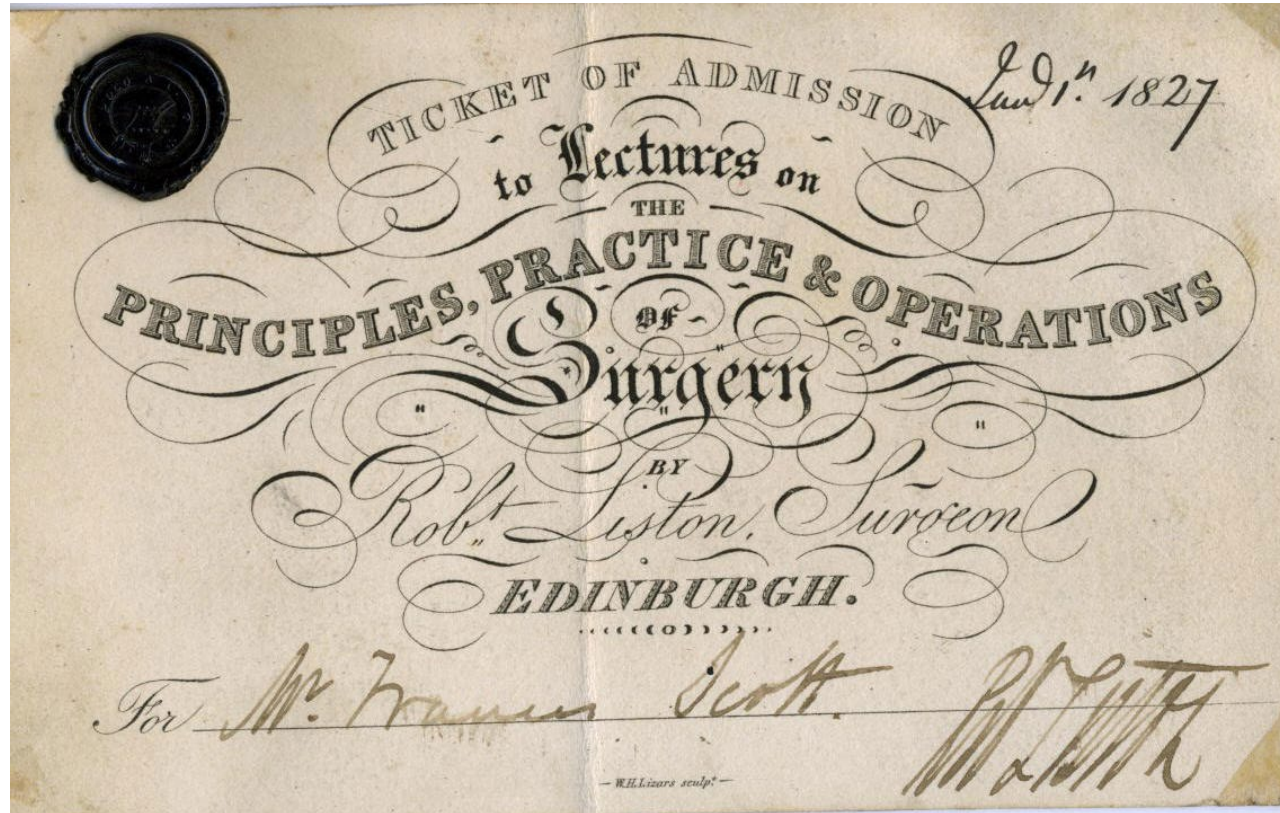 1827
TICKET OF ADMISSION
to Lectures on
THE
PRINCIPLES, PRACTICE & OPERATIONS
OF
Surgery
BY
Robt. Liston, Surgeon
EDINBURGH.
For Mr. Francis Scott.
W.H.Lizars sculpt.